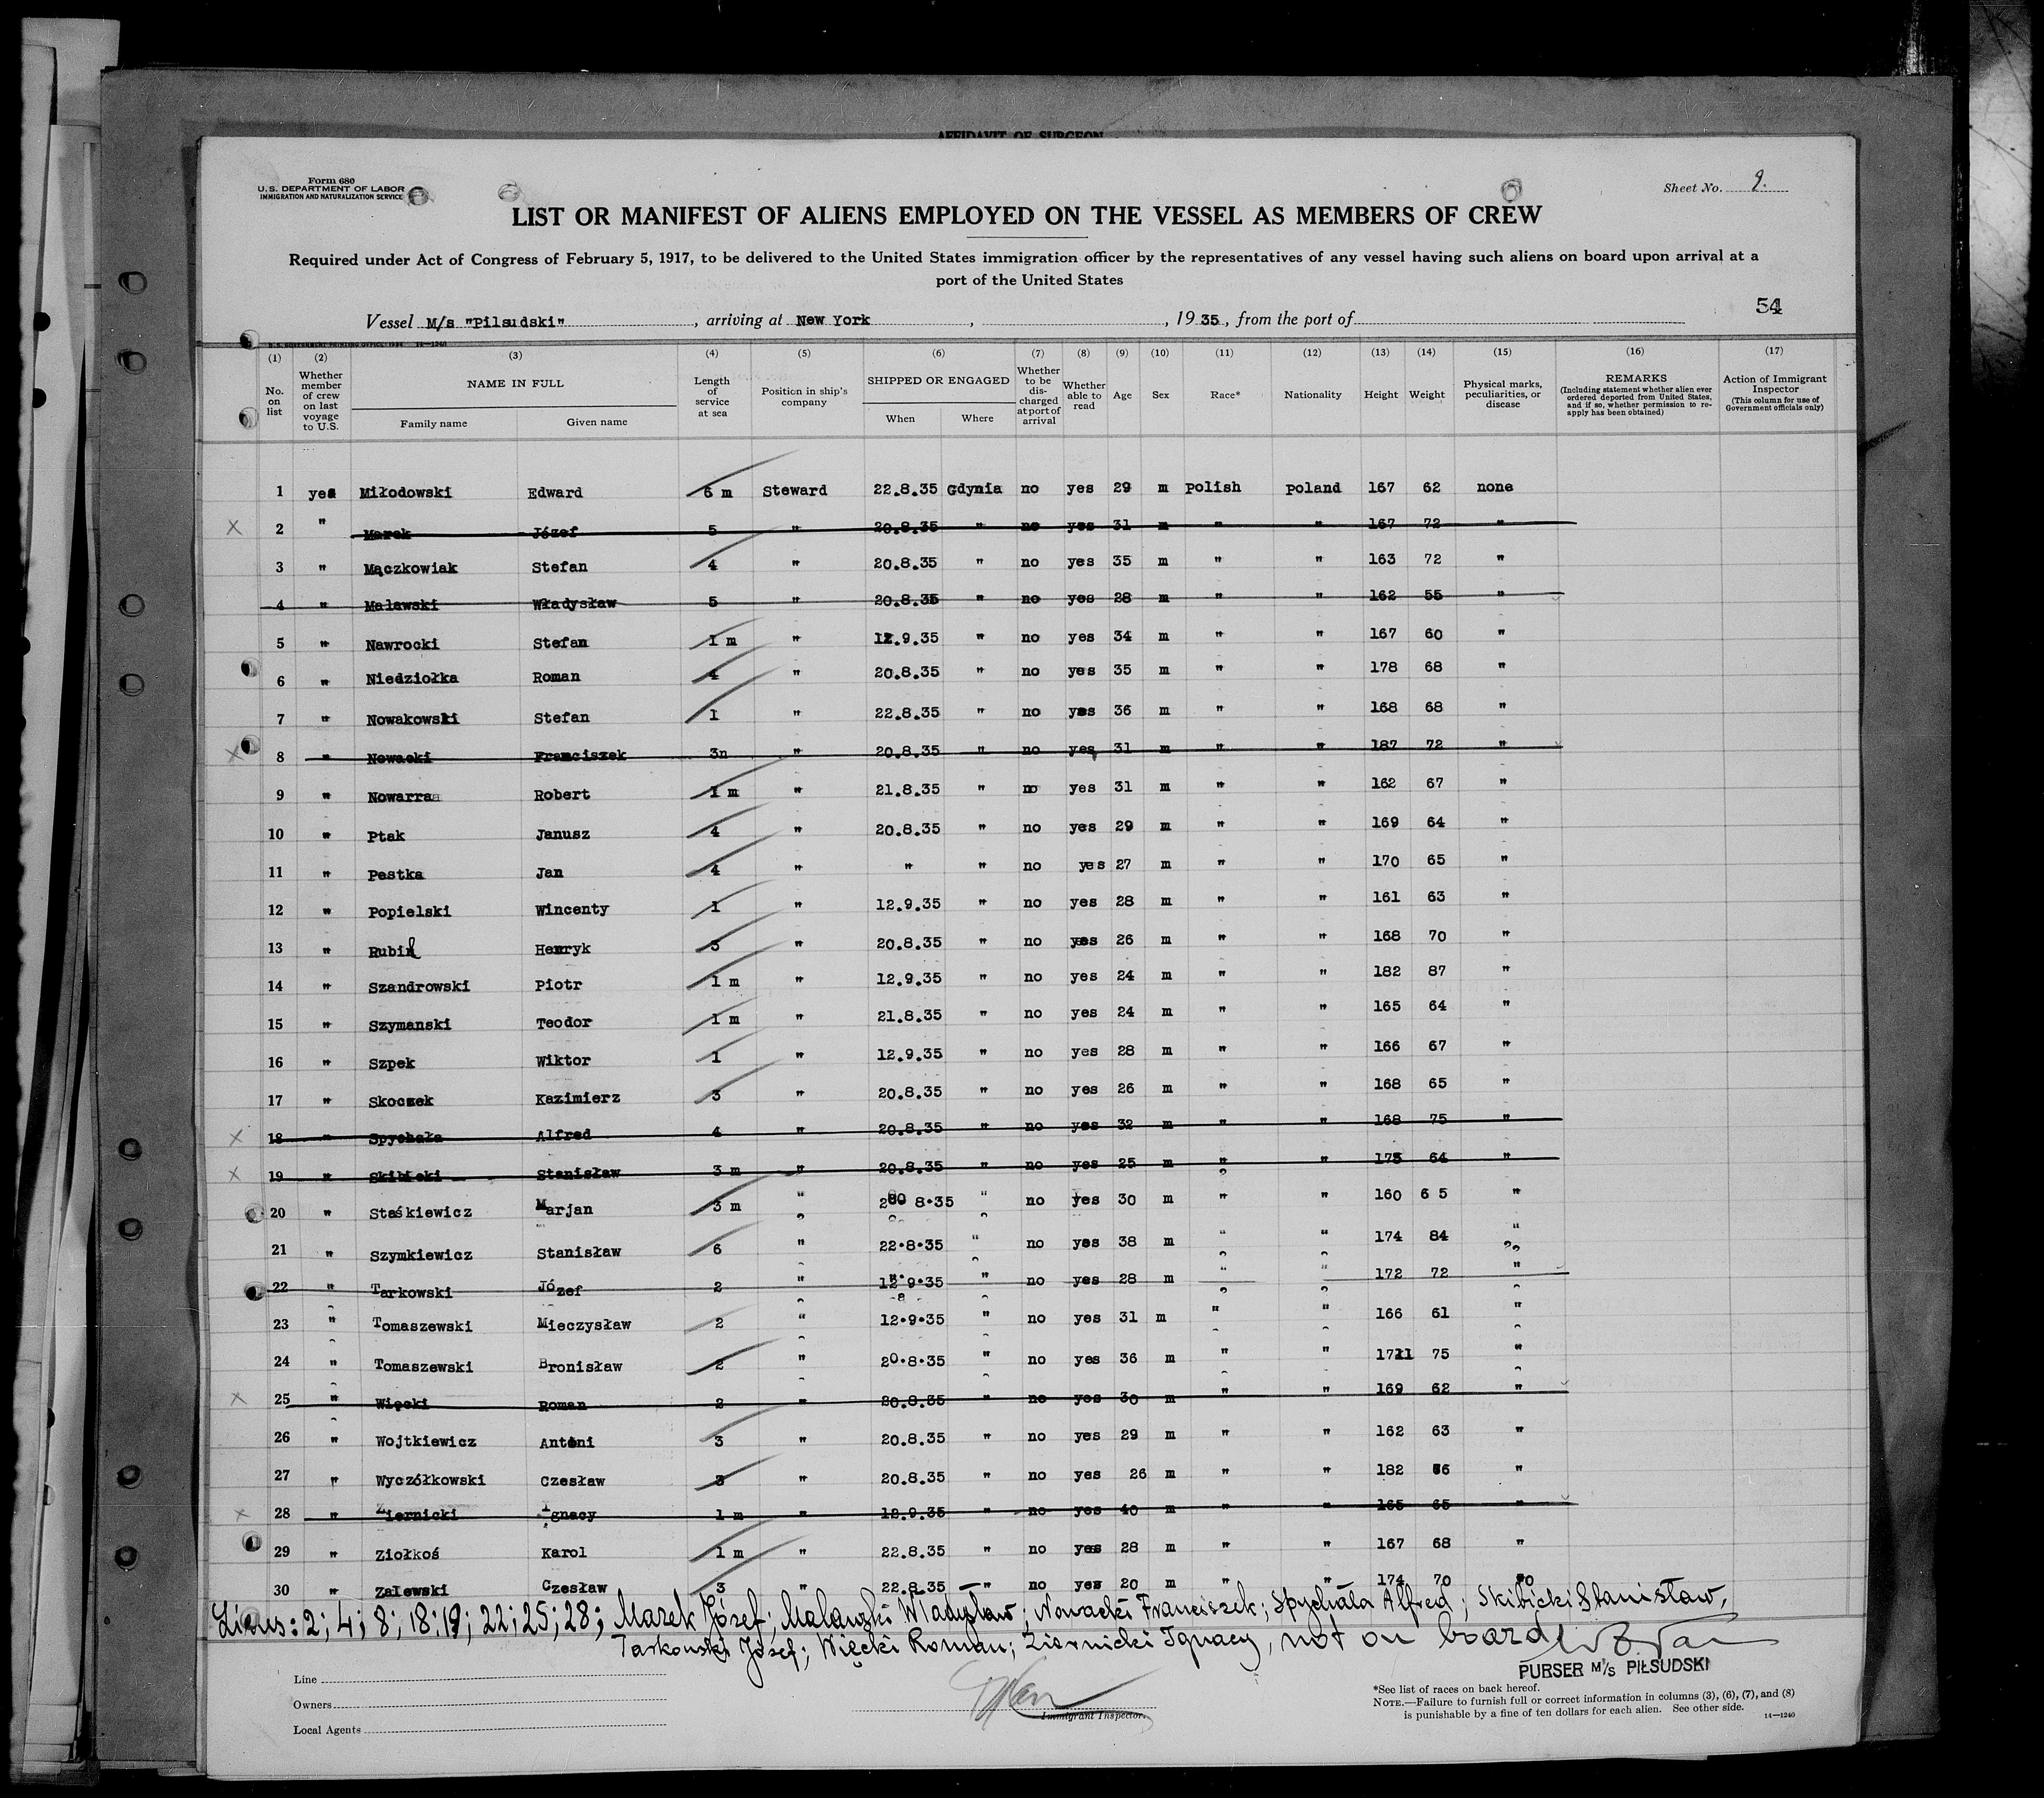 AFFIDAVIT OF SURGEON
Form 680
U. S. DEPARTMENT OF LABOR
IMMIGRATION AND NATURALIZATION SERVICE
Sheet No. 9.
LIST OR MANIFEST OF ALIENS EMPLOYED ON THE VESSEL AS MEMBERS OF CREW
Required under Act of Congress of February 5, 1917, to be delivered to the United States immigration officer by the representatives of any vessel having such aliens on board upon arrival at a
port of the United States
54
Vessel M/s "Pilsudski", arriving at New York, , 1935, from the port of
(1) (2) (3) (4) (5) (6) (7) (8) (9) (10) (11) (12) (13) (14) (15) (16) (17)
No. on list Whether member of crew on last voyage to U.S. NAME IN FULL Family name Given name Length of service at sea Position in ship's company SHIPPED OR ENGAGED When Where Whether to be discharged at port of arrival Whether able to read Age Sex Race* Nationality Height Weight Physical marks, peculiarities, or disease REMARKS (Including statement whether alien ever ordered deported from United States, and if so, whether permission to reapply has been obtained) Action of Immigrant Inspector (This column for use of Government officials only)
1 yes Miłodowski Edward 6 m Steward 22.8.35 Gdynia no yes 29 m polish poland 167 62 none
X 2 " Marek Józef 5 " 20.8.35 " no yes 31 m " " 167 72 "
3 " Mączkowiak Stefan 4 " 20.8.35 " no yes 35 m " " 163 72 "
4 " Malawski Władysław 5 " 20.8.35 " no yes 28 m " " 162 55 "
5 " Nawrocki Stefan 1 m " 12.9.35 " no yes 34 m " " 167 60 "
6 " Niedziołka Roman 4 " 20.8.35 " no yes 35 m " " 178 68 "
7 " Nowakowski Stefan 1 " 22.8.35 " no yes 36 m " " 168 68 "
X 8 " Nowacki Franciszek 3n " 20.8.35 " no yes 31 m " " 187 72 "
9 " Nowarra Robert 1 m " 21.8.35 " no yes 31 m " " 162 67 "
10 " Ptak Janusz 4 " 20.8.35 " no yes 29 m " " 169 64 "
11 " Pestka Jan 4 " " " no yes 27 m " " 170 65 "
12 " Popielski Wincenty 1 " 12.9.35 " no yes 28 m " " 161 63 "
13 " Rubil Henryk 3 " 20.8.35 " no yes 26 m " " 168 70 "
14 " Szandrowski Piotr 1 m " 12.9.35 " no yes 24 m " " 182 87 "
15 " Szymanski Teodor 1 m " 21.8.35 " no yes 24 m " " 165 64 "
16 " Szpek Wiktor 1 " 12.9.35 " no yes 28 m " " 166 67 "
17 " Skoczek Kazimierz 3 " 20.8.35 " no yes 26 m " " 168 65 "
X 18 " Spychała Alfred 4 " 20.8.35 " no yes 32 m " " 168 75 "
X 19 " Skibicki Stanisław 3 m " 20.8.35 " no yes 25 m " " 175 64 "
20 " Staśkiewicz Marjan 3 m " 20 8.35 " no yes 30 m " " 160 6 5 "
21 " Szymkiewicz Stanisław 6 " 22.8.35 " no yes 38 m " " 174 84 "
22 " Tarkowski Józef 2 " 12.9.35 " no yes 28 m " " 172 72 "
23 " Tomaszewski Mieczysław 2 " 12.9.35 " no yes 31 m " " 166 61 "
24 " Tomaszewski Bronisław 2 " 20.8.35 " no yes 36 m " " 171 75 "
X 25 " Więcki Roman 2 " 20.8.35 " no yes 30 m " " 169 62 "
26 " Wojtkiewicz Antoni 3 " 20.8.35 " no yes 29 m " " 162 63 "
27 " Wyczółkowski Czesław 3 " 20.8.35 " no yes 26 m " " 182 "
X 28 " Ziernicki Ignacy 1 m " 12.9.35 " no yes 40 m " " 165 65 "
29 " Ziołkoś Karol 1 m " 22.8.35 " no yes 28 m " " 167 68 "
30 " Zalewski Czesław 3 " 22.8.35 " no yes 20 m " " 174 70
Linus: 2; 4; 8; 18; 19; 22; 25; 28; Marek Józef; Malawski Władysław; Nowacki Franciszek; Spychała Alfred; Skibicki Stanisław,
Tarkowski Józef; Więcki Roman; Ziernicki Ignacy, not on board
PURSER M/S PIŁSUDSKI
Line
Owners
Local Agents
Immigrant Inspector.
*See list of races on back hereof.
NOTE.—Failure to furnish full or correct information in columns (3), (6), (7), and (8)
is punishable by a fine of ten dollars for each alien. See other side.
14—1240